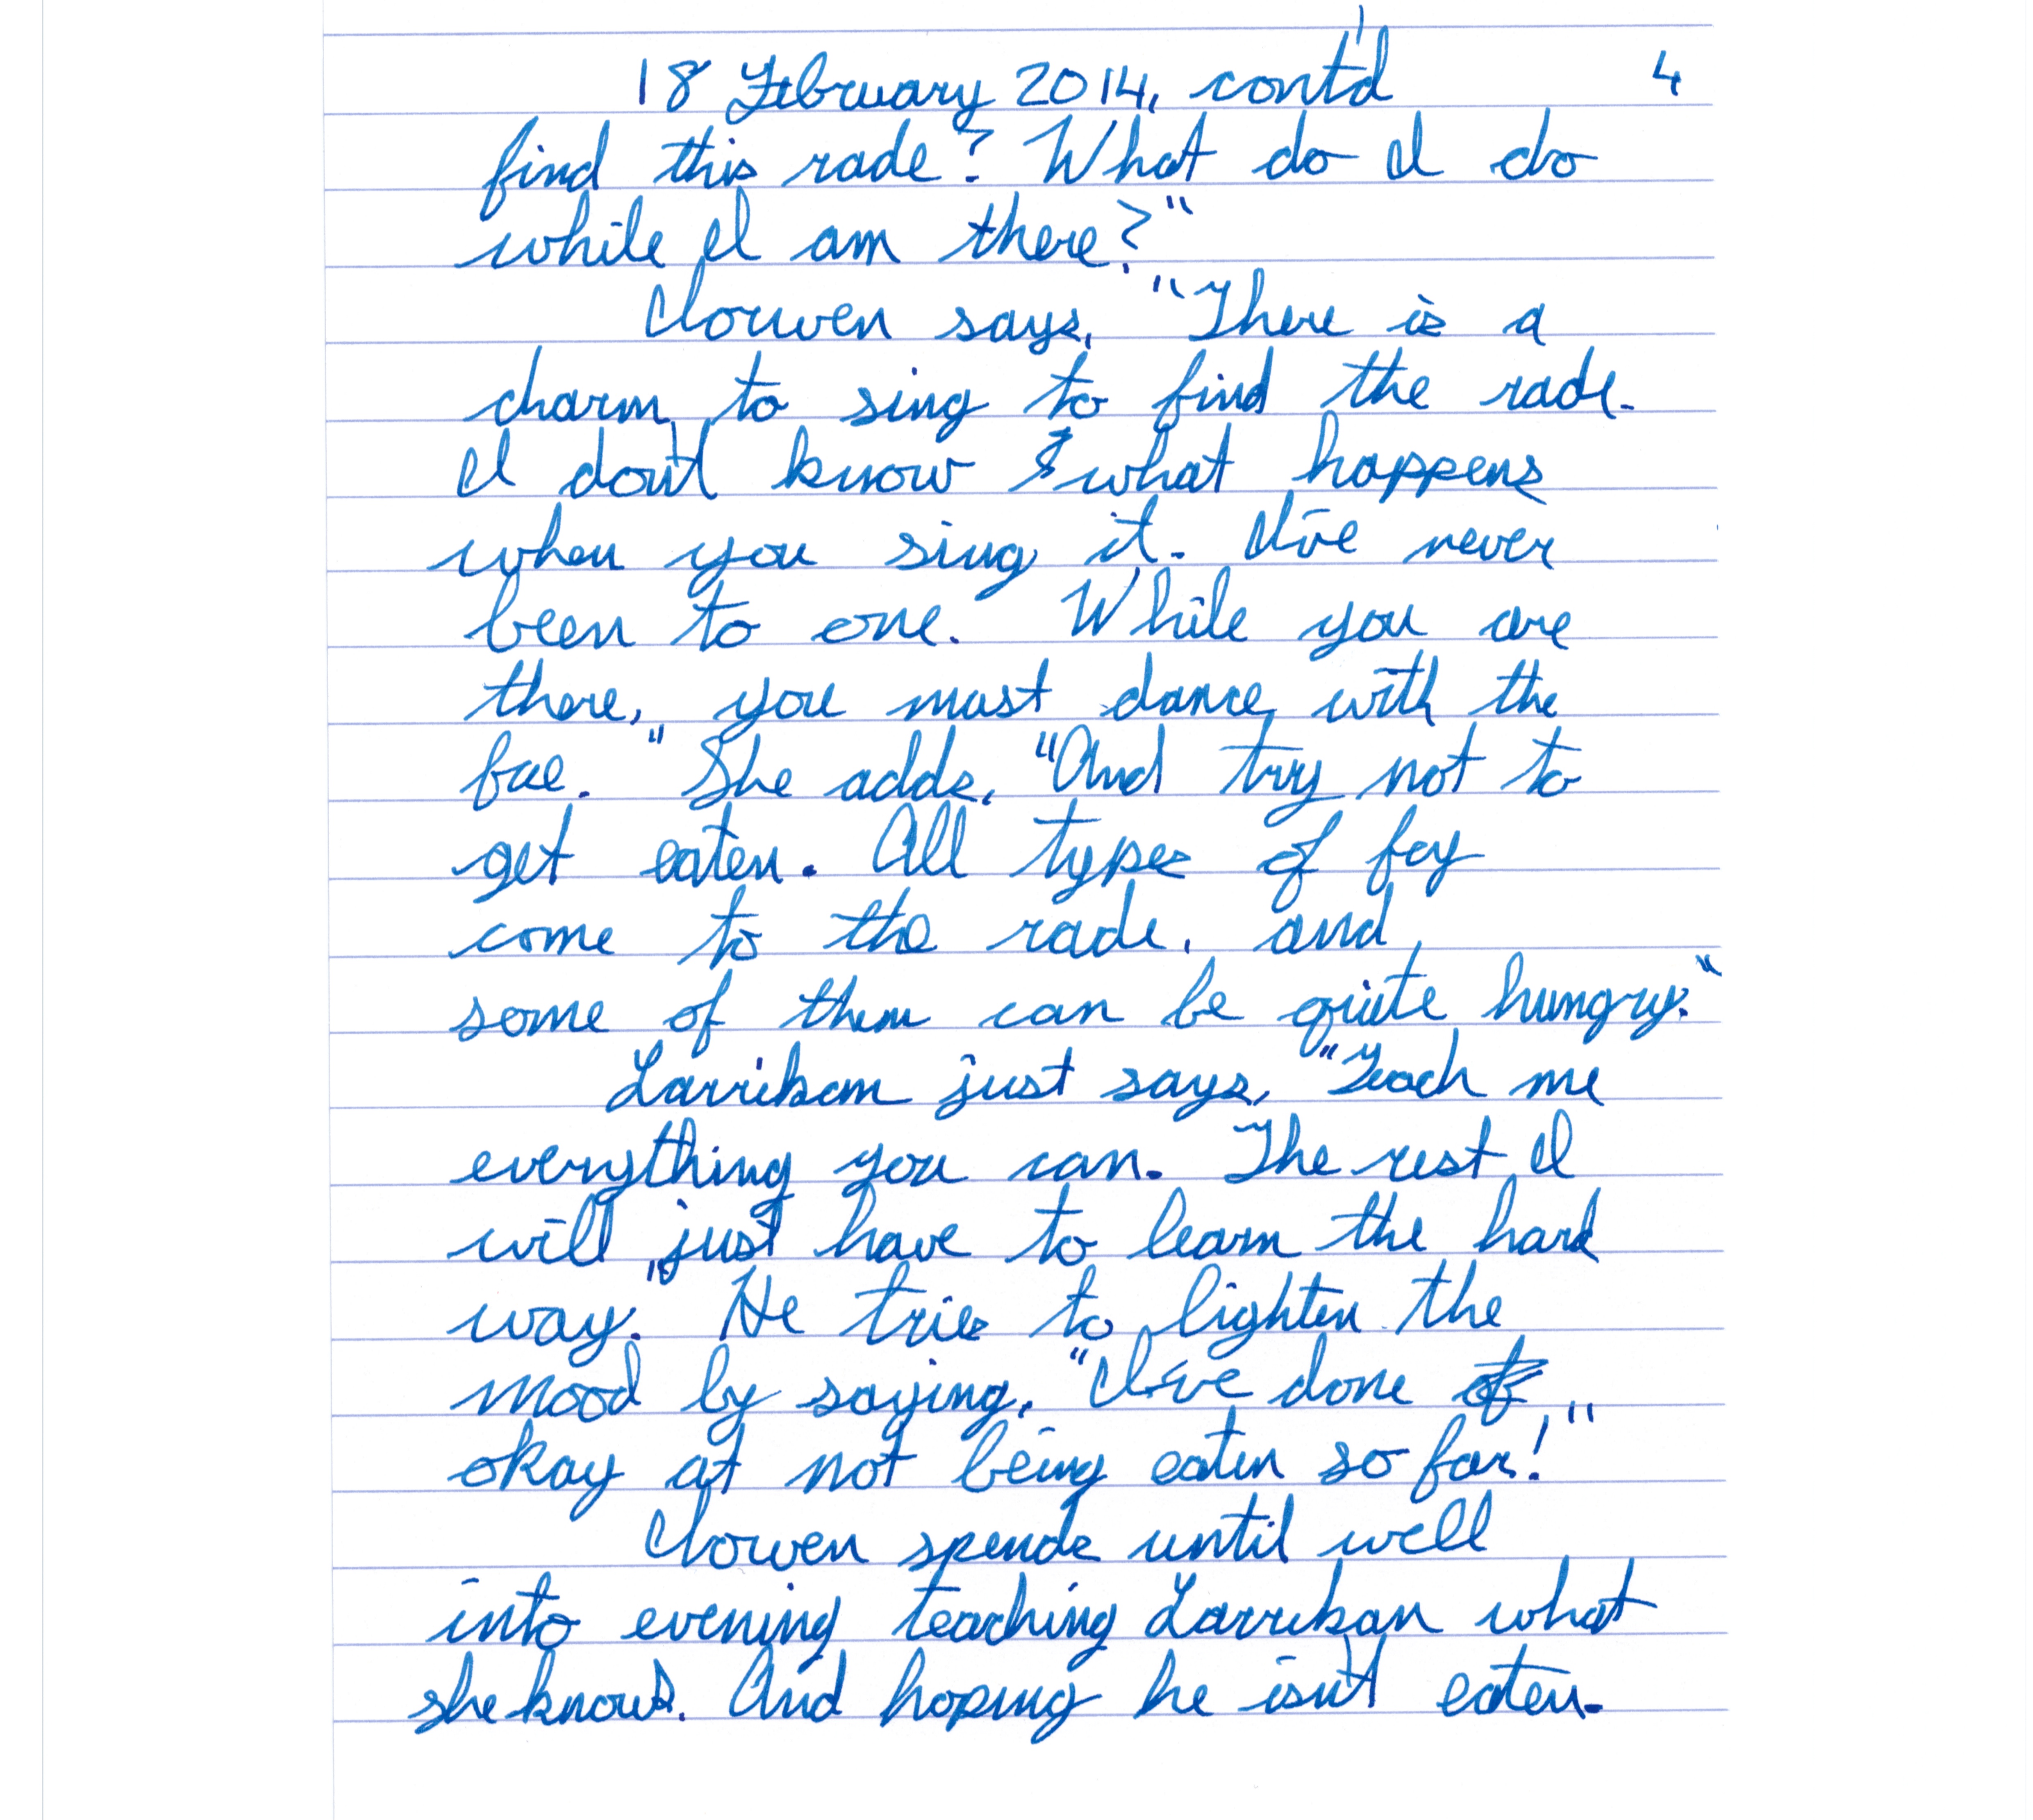 18 February 2014, cont'd 4
find this rade? What do I do
while I am there?"
Iorwen says, "There is a
charm to sing to find the rade.
I don't know what happens
when you sing it. I've never
been to one. While you are
there, you must dance with the
fae." She adds, "And try not to
get eaten. All types of fey
come to the rade, and
some of them can be quite hungry."
Larriban just says, "Teach me
everything you can. The rest I
will just have to learn the hard
way." He tries to lighten the
mood by saying, "I've done
okay at not being eaten so far!"
Iorwen spends until well
into evening teaching Larriban what
she knows. And hoping he isn't eaten.